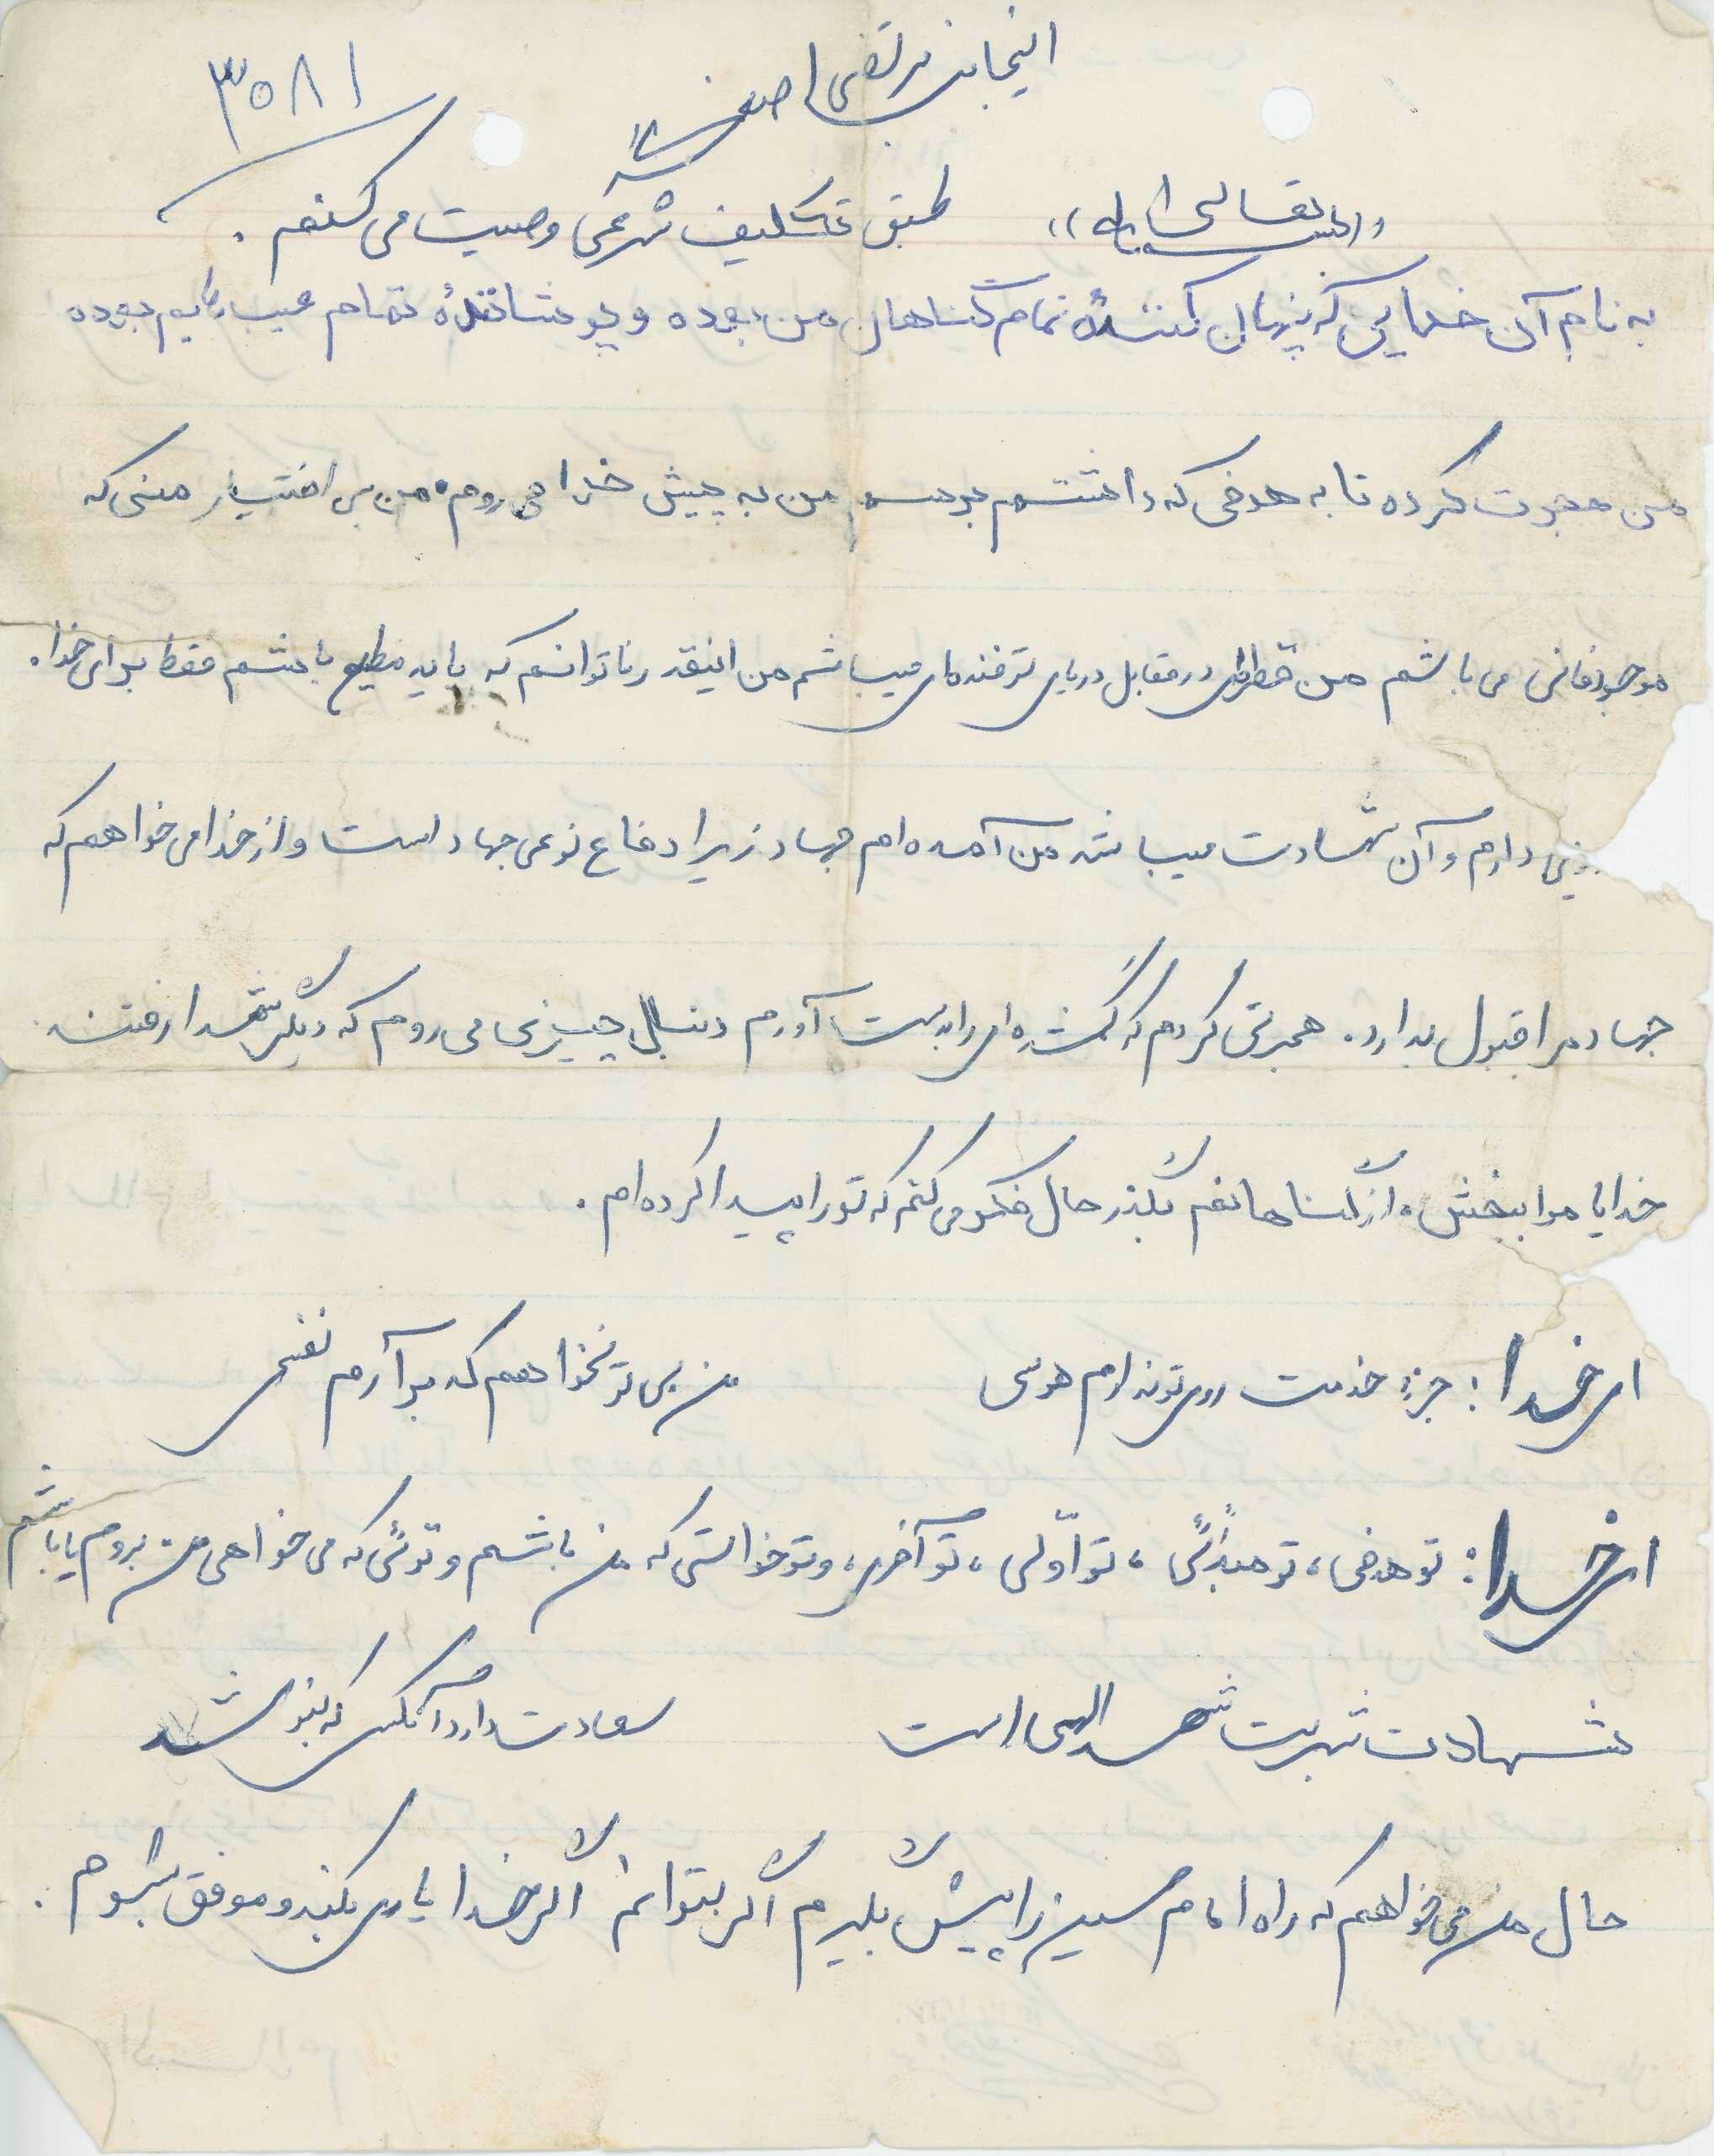 اینجانب مرتضی
۳۵۸۱
((بسمه تعالی)) طبق تکلیف شرعی وصیت می کنم.
به نام آن خدایی که پنهان کنندهٔ تمام گناهان من بوده و پوشانندهٔ تمام عیب هایم بوده
من هجرت کرده تا به هدفی که داشتم برسم من به پیش خدا می روم. من بی اختیار منی که
موجود فانی می باشم من قطره‌ای در مقابل دریای میباشم من اینقدر ناتوانم که باید مطیع باشم فقط برای خدا.
دارم و آن شهادت میباشد من آمده ام جهاد زیرا دفاع نوعی جهاد است و از خدا می خواهم که
جهاد مرا قبول بدارد. هجرتی کردم که گمشده‌ای را بدست آورم دنبال چیزی می روم که دیگر شهدا رفتند.
خدایا مرا ببخش. از گناهانم بگذر حال فکر می کنم که تو را پیدا کرده ام.
ای خدا: جزء خدمت روی تو ندارم هوسی من بی تو نخواهم که برآرم نفسی
ای خدا: تو هدفی، تو مبدأئی، تو اوّلی، تو آخری، و تو خواستی که من باشم و توئی که می خواهی من بروم یا باشم
شهادت شربت شهد الهی است سعادت دارد آنکس که بنوشد
حال من می خواهم که راه امام حسین را پیش بگیرم اگر بتوانم اگر خدا یاری بکند و موفق بشوم.